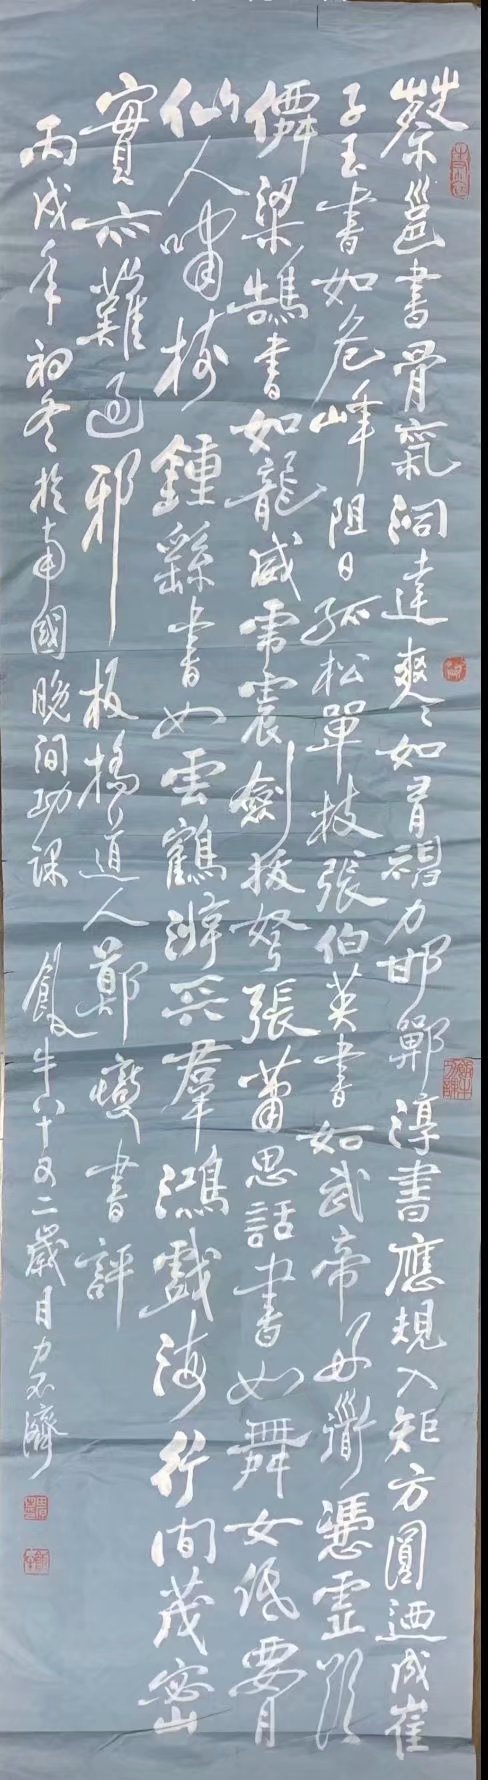 蔡邕書骨氣洞達爽爽如有神力邯鄲淳書應規入矩方圓迺成崔
子玉書如危峰阻日孤松單枝張伯英書如武帝好衟憑虛欲
僊梁鵠書如龍威虎震劍拔弩張蕭思話書如舞女低要
仙人嘯樹鍾繇書如雲鶴游天羣鴻戲海行間茂密
實亦難過耶板橋道人鄭燮書評
丙戌年初冬於南國晚間功課
牛八十又二歲目力不濟